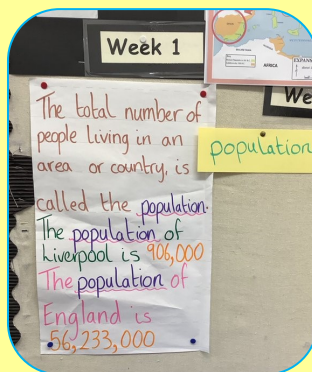 Week 1
AFRICA
EXPANS
We
The total number of
people living in an
area or country, is
called the population.
The population of
Liverpool is 906,000
The population of
England is
56,233,000
population